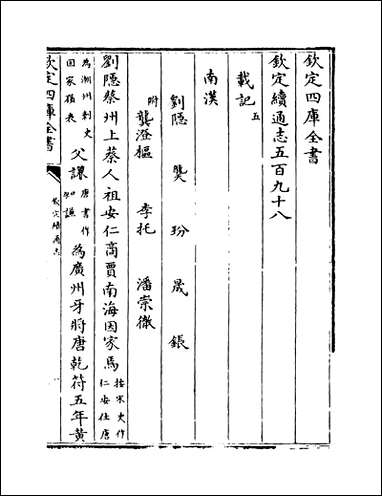 欽定四庫全書
欽定續通志五百九十八
載記五
南漢
劉隱 龑 玢 晟 鋹
附龔澄樞 李托 潘崇徹
劉隱蔡州上蔡人祖安仁商賈南海因家焉按宋史作仁安仕唐
為潮州刺史因家嶺表父謙唐書作知謙為廣州牙將唐乾符五年黃
欽定四庫全書
欽定續通志